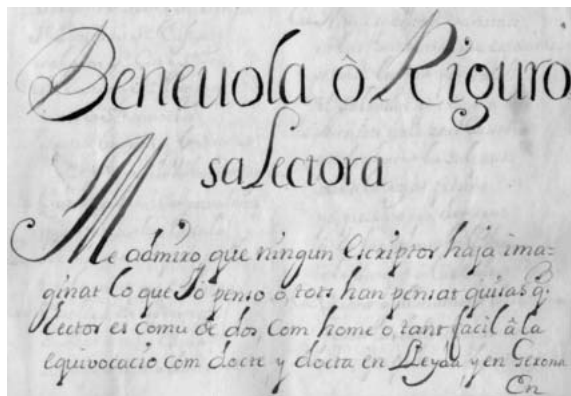 Beneuola ô Riguro
sa Lectora
Me admiro que ningun Escriptor haja ima=
ginat lo que Jo penso o, tots han pensat quisas q̃
Lector es comu de dos, com home o, tant facil â la
equivocacio com docte y docta en Lleyda y en Gerona
En